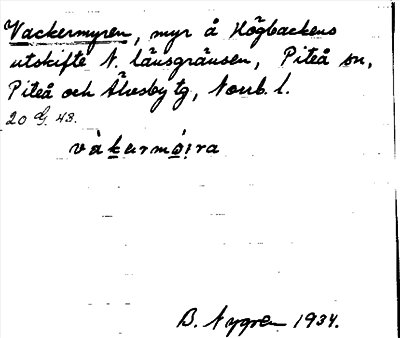 Vackermyren, myr å Högbackens
utskifte N. länsgränsen, Piteå sn,
Piteå och Älvsby tg, Norrb. l.
20 G. 43.
vàkermø̀ra
B. Nygren 1934.